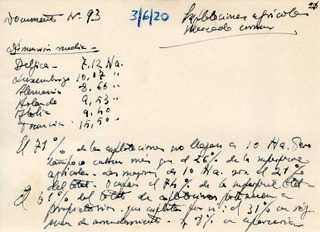 Documento Nº 93 3/6/20 Explotaciones agrícolas 26
Mercado común
Dimensión media.-
Belgica - 7,12 Ha.
Luxemburgo 10,07 "
Alemania - 8.66 "
Holanda 9,53 "
Italia 9,40
Francia - 15,50 -
El 71% de las explotaciones no llegan a 10 Ha. Pero
tampoco cubren más que el 26% de la superficie
agrícola. Las mayores de 10 Ha. son el 29%
del total. Ocupan el 74% de la superficie total
El 61% del total de explotaciones pertenecen a
propietarios que explotan por sí. el 31% en régimen
de arrendamiento. El 8% en aparcería